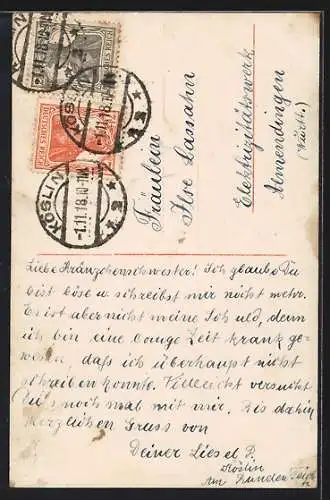 DEUTSCHES REICH
DEUTSCHES REICH
KÖSLIN
-1.11.18.10-11V.
* 2 *
KÖSLIN
-1.11.18.10-11V.
* 2 *
Fräulein
Ilse Lassahn
Elektrizitätswerk
Almendingen
(Württ.)
Liebe Kränzchenschwester! Ich glaube Du
bist böse u. schreibst mir nicht mehr.
Es ist aber nicht meine Schuld, denn
ich bin eine lange Zeit krank ge-
wesen, daß ich überhaupt nicht
schreiben konnte. Vielleicht versuchst
Du's noch mal mit mir. Bis dahin
Herzlichen Gruss von
Deiner Liesel P.
Köslin
Am Runden Teich